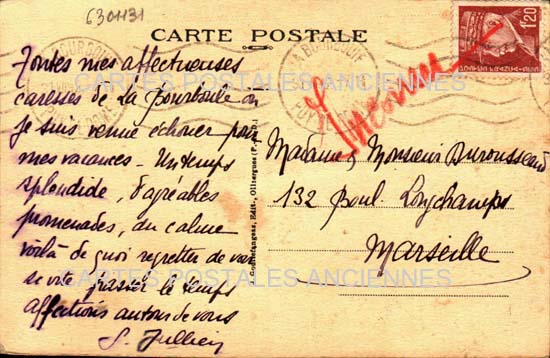 6301131
CARTE POSTALE
LA BOURBOULE
LA BOURBOULE
PUY DE DOME
1F20
Toutes mes affectueuses
caresses de La Bourboule où
je suis venue échouer pour
mes vacances - Un temps
splendide, d'agréables
promenades, du calme
voilà de quoi regretter de voir
se vite passer le temps
affections autour de vous
S. Jullien
Inconnu
Madame, Monsieur Durousseau
132 Boul. Longchamps
Marseille
CARTES POSTALES ANCIENNES
CARTES POSTALES ANCIENNES